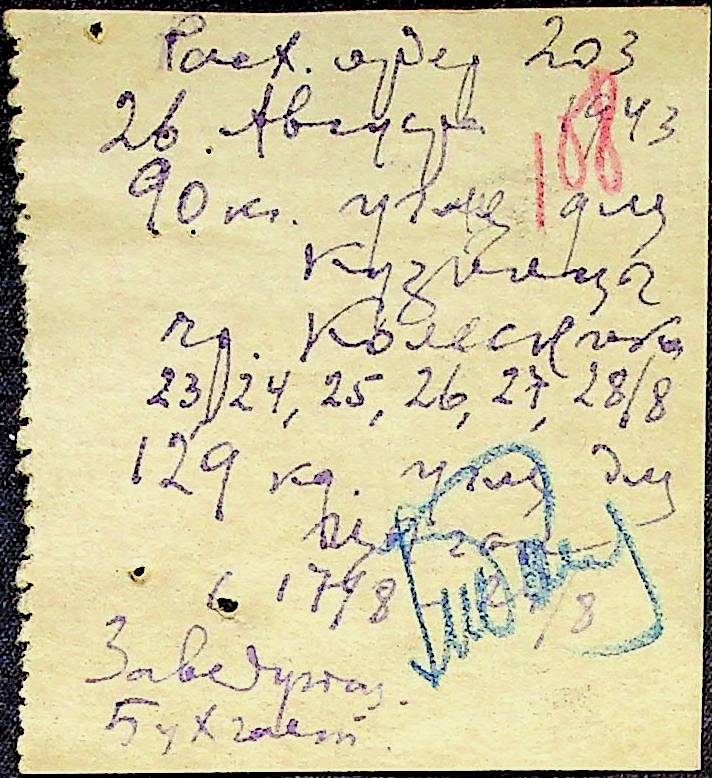 Расх. ордер 203
26 Августа 1943
188
90 кг. угля для
Кузница
гр. Колесника
23, 24, 25, 26, 27, 28/8
129 кг. угля для
с 17/8 /8
Заведующ.
Бухгалт.